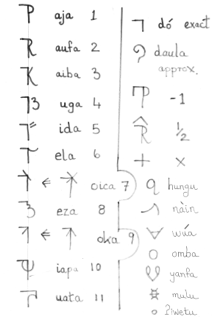 aja 1
aufa 2
aiba 3
uga 4
ida 5
ela 6
oica 7
eza 8
oka 9
iapa 10
uata 11
dó exact
daula
approx.
-1
½
+ ×
hungu
nàin
wúa
omba
yanfa
mulu